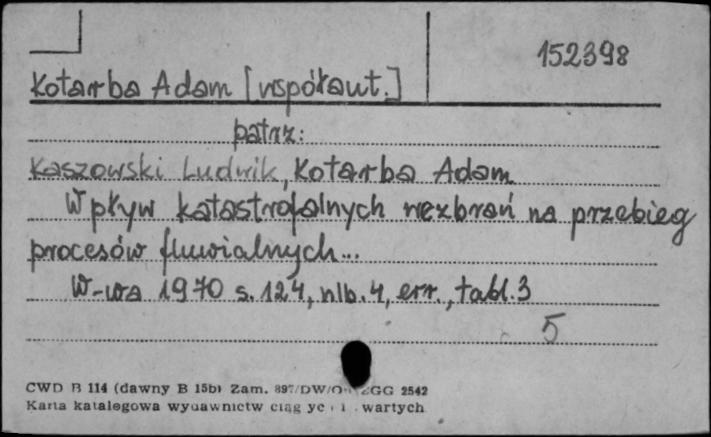 152398
Kotarba Adam [współaut.]
patrz:
Kaszowski Ludwik, Kotarba Adam
Wpływ katastrofalnych wezbrań na przebieg
procesów fluwialnych...
W-wa 1970 s. 124, nlb. 4, err., tabl. 3
5
CWD B 114 (dawny B 15b) Zam. 897/DW/O ZGG 2542
Karta katalogowa wydawnictw ciąg wartych